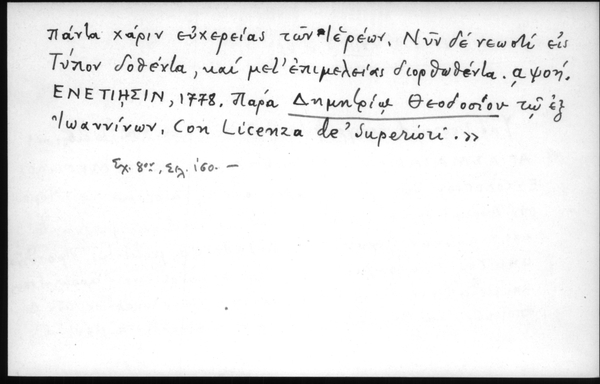 πάντα χάριν εὐχερείας τῶν Ἱερέων. Νῦν δέ νεωστί εἰς
Τύπον δοθέντα, καί μετ' ἐπιμελείας διορθωθέντα. αψοή.
ΕΝΕΤΙῌΣΙΝ, 1778. Παρά Δημητρίῳ Θεοδοσίου τῷ ἐξ
Ἰωαννίνων. Con Licenza de' Superiori. »
Σχ. 8ον, Σελ. 150. —